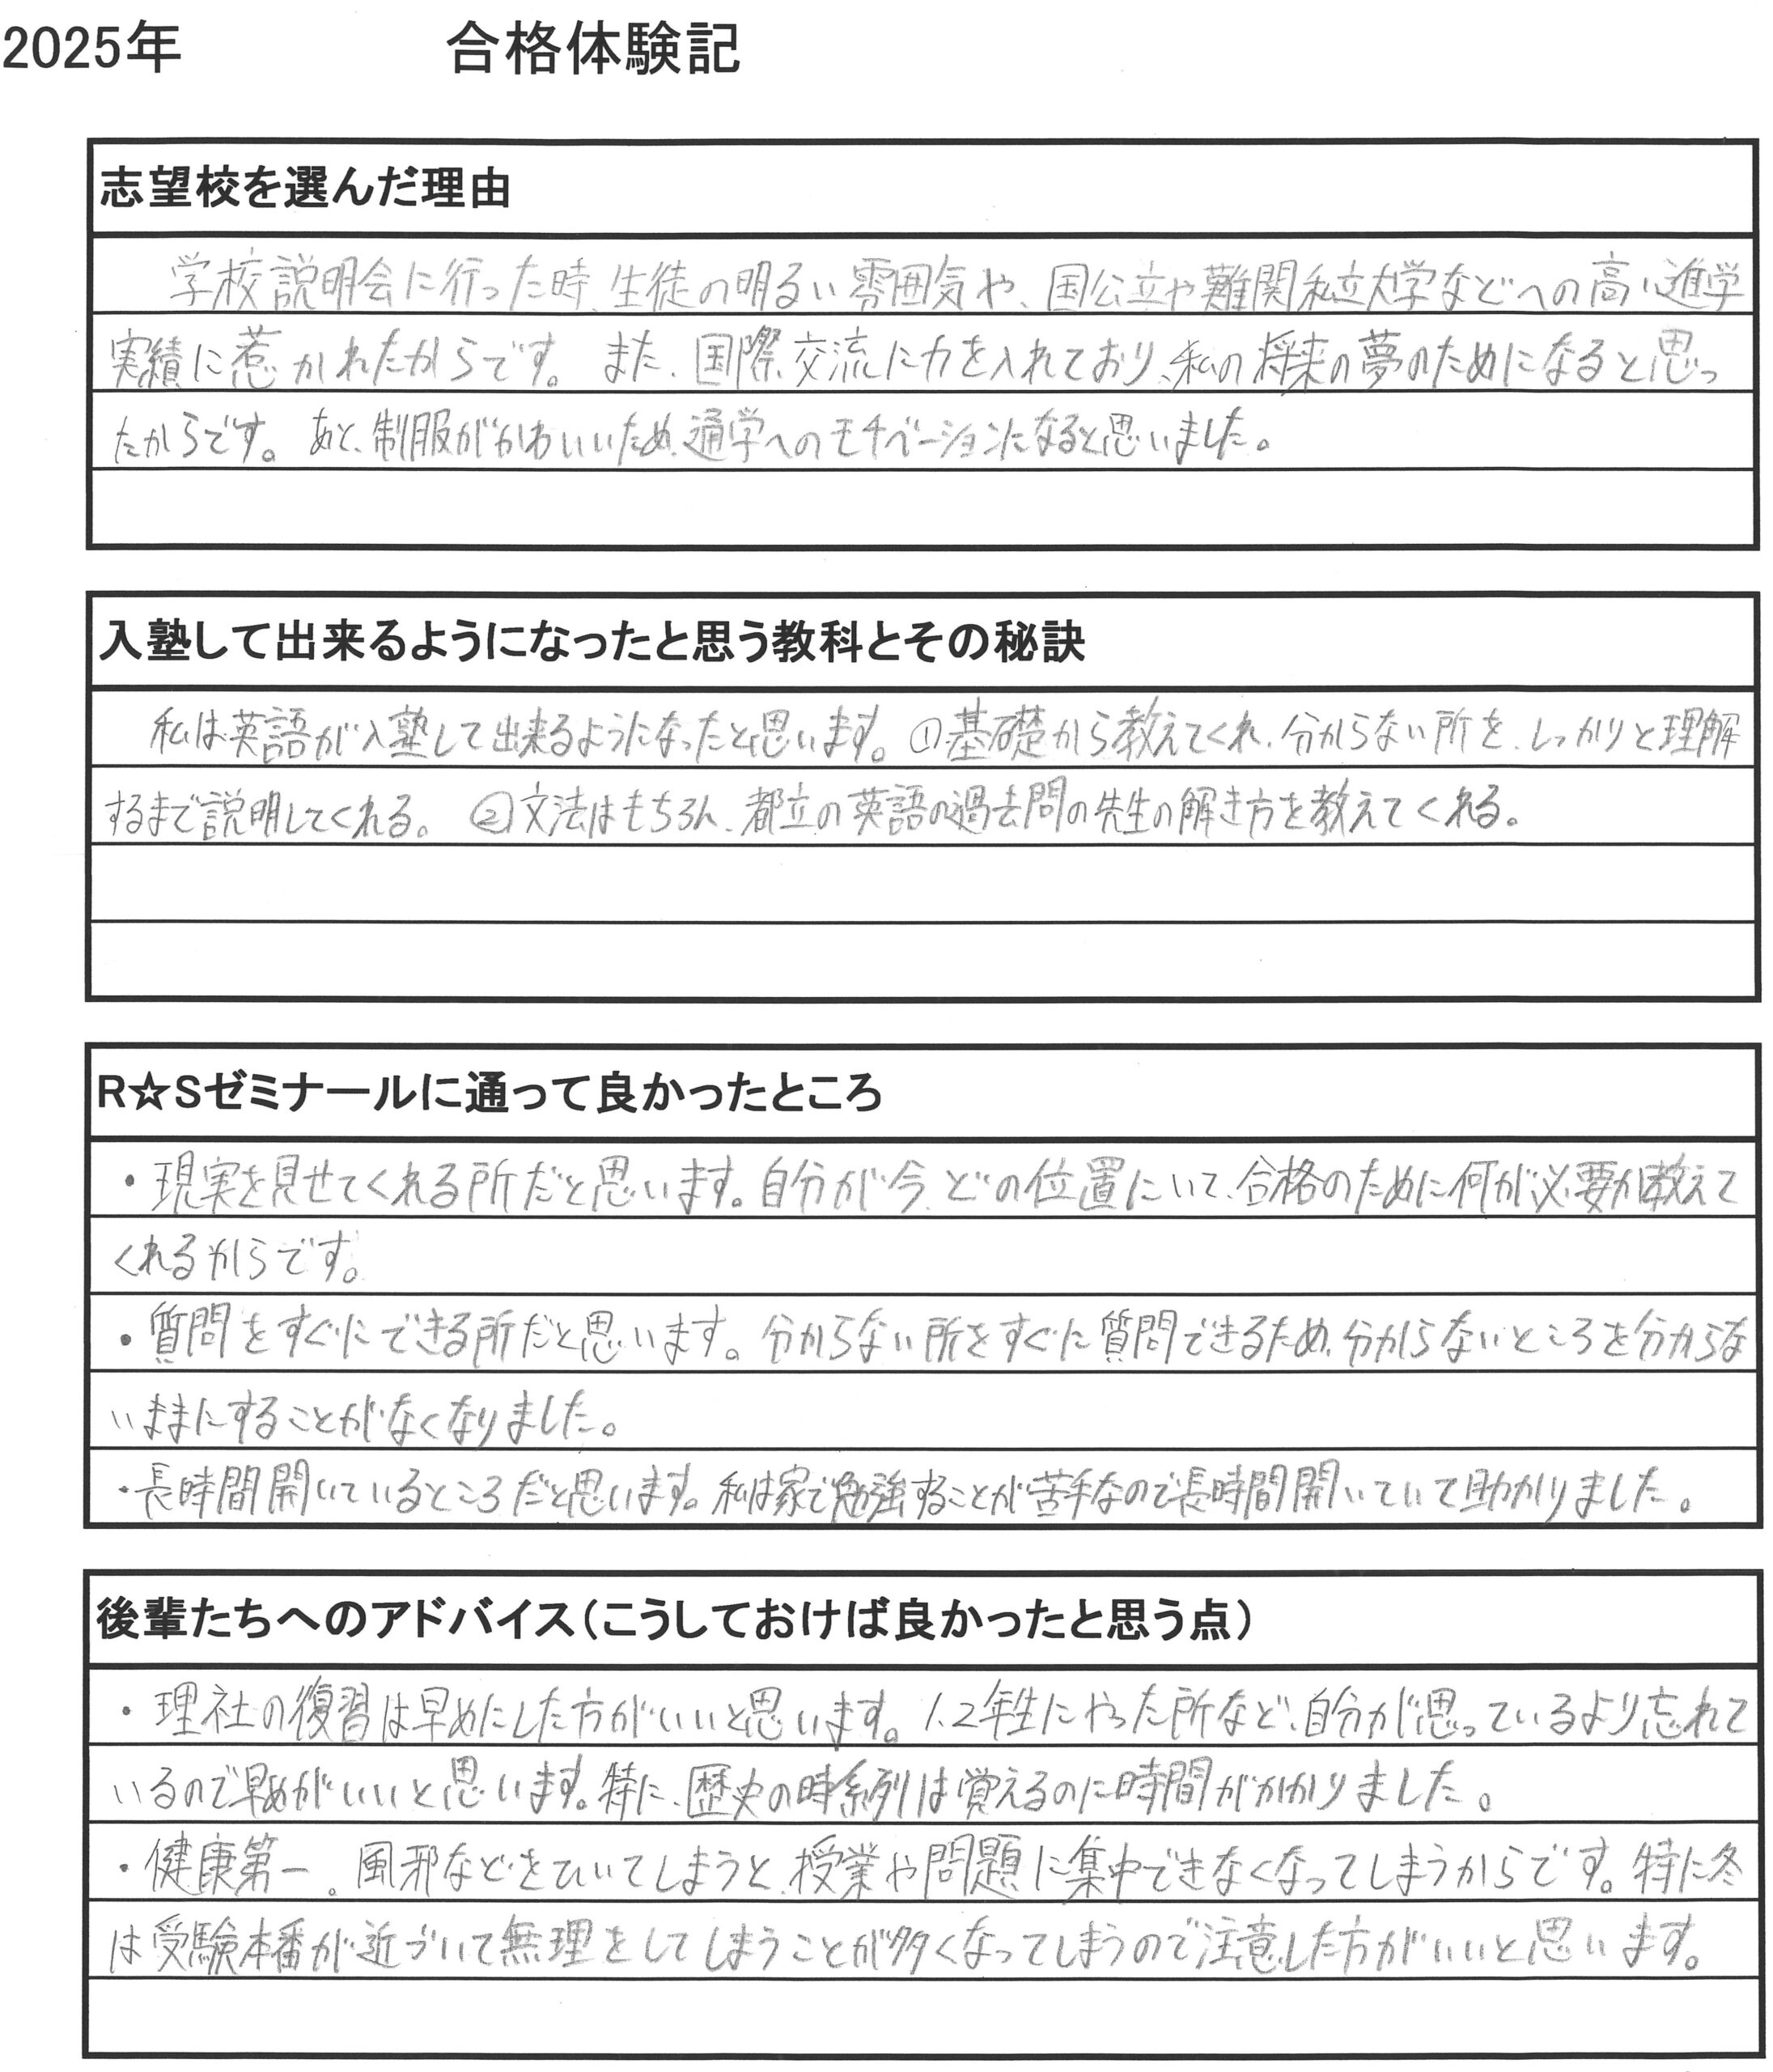 2025年 合格体験記
志望校を選んだ理由
学校説明会に行った時、生徒の明るい雰囲気や、国公立や難関私立大学などへの高い進学
実績に惹かれたからです。また、国際交流に力を入れており、私の将来の夢のためになると思っ
たからです。あと、制服がかわいいため、通学へのモチベーションになると思いました。
入塾して出来るようになったと思う教科とその秘訣
私は英語が入塾して出来るようになったと思います。①基礎から教えてくれ、分からない所を、しっかりと理解
するまで説明してくれる。②文法はもちろん、都立の英語の過去問の先生の解き方を教えてくれる。
R☆Sゼミナールに通って良かったところ
・現実を見せてくれる所だと思います。自分が今、どの位置にいて、合格のために何が必要か教えて
くれるからです。
・質問をすぐにできる所だと思います。分からない所をすぐに質問できるため、分からないところを分からな
いままにすることがなくなりました。
・長時間開いているところだと思います。私は家で勉強することが苦手なので長時間開いていて助かりました。
後輩たちへのアドバイス(こうしておけば良かったと思う点)
・理社の復習は早めにした方がいいと思います。1、2年生にやった所など、自分が思っているより忘れて
いるので早めがいいと思います。特に、歴史の時系列は覚えるのに時間がかかりました。
・健康第一。風邪などをひいてしまうと、授業や問題に集中できなくなってしまうからです。特に冬
は受験本番が近づいて無理をしてしまうことが多くなってしまうので注意した方がいいと思います。